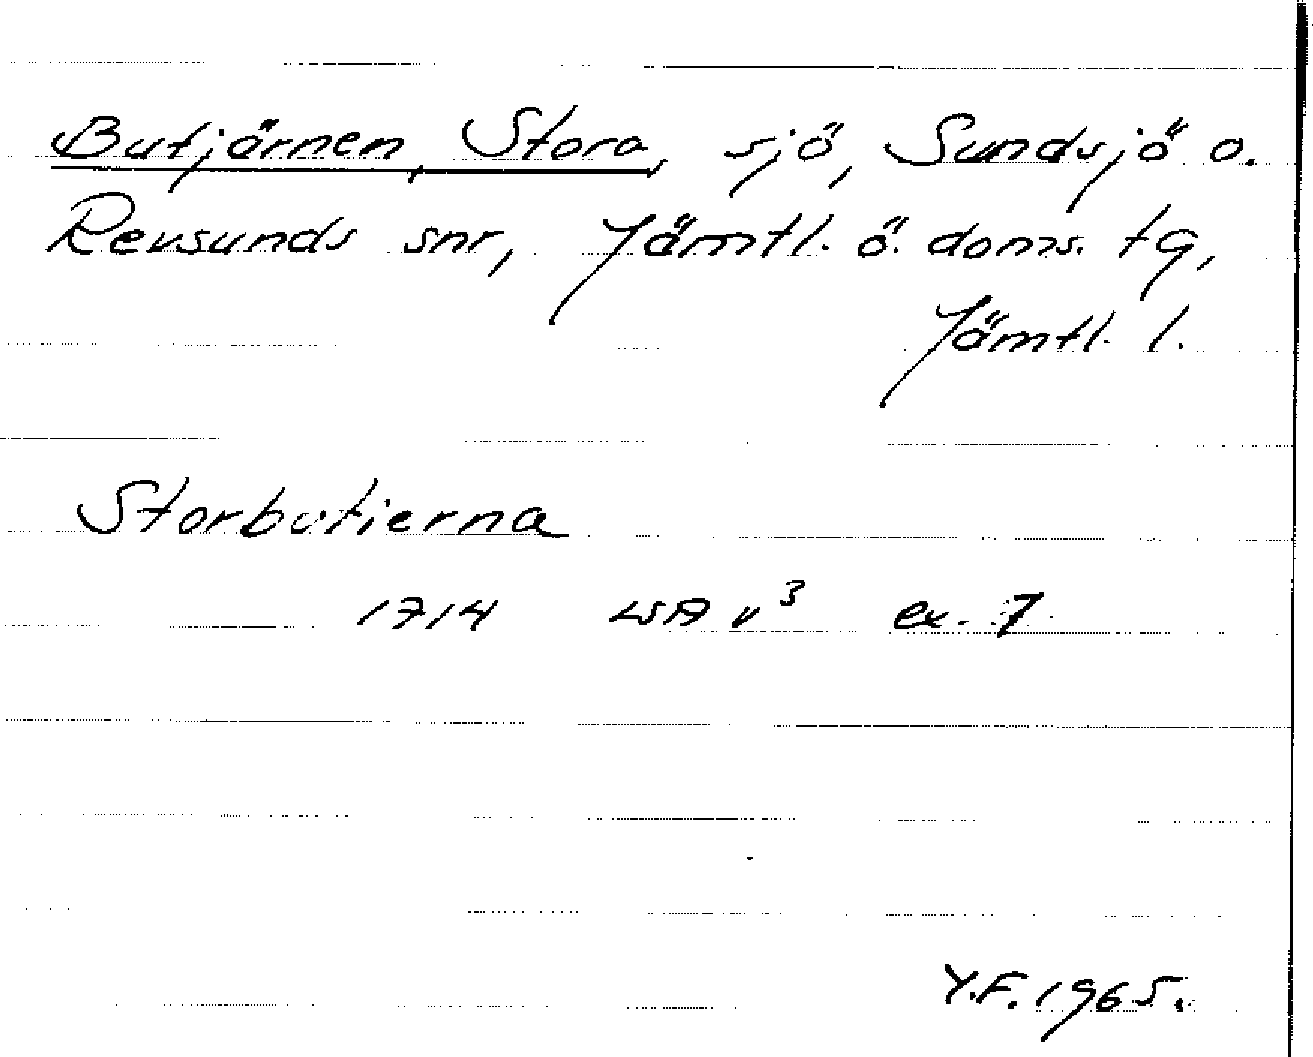 Butjärnen, Stora, sjö, Sundsjö o.
Revsunds snr, Jämtl. ö. doms. tg,
Jämtl. l.
Storbutierna
1714 LSA v³ ex. 7
Y.F. 1965.